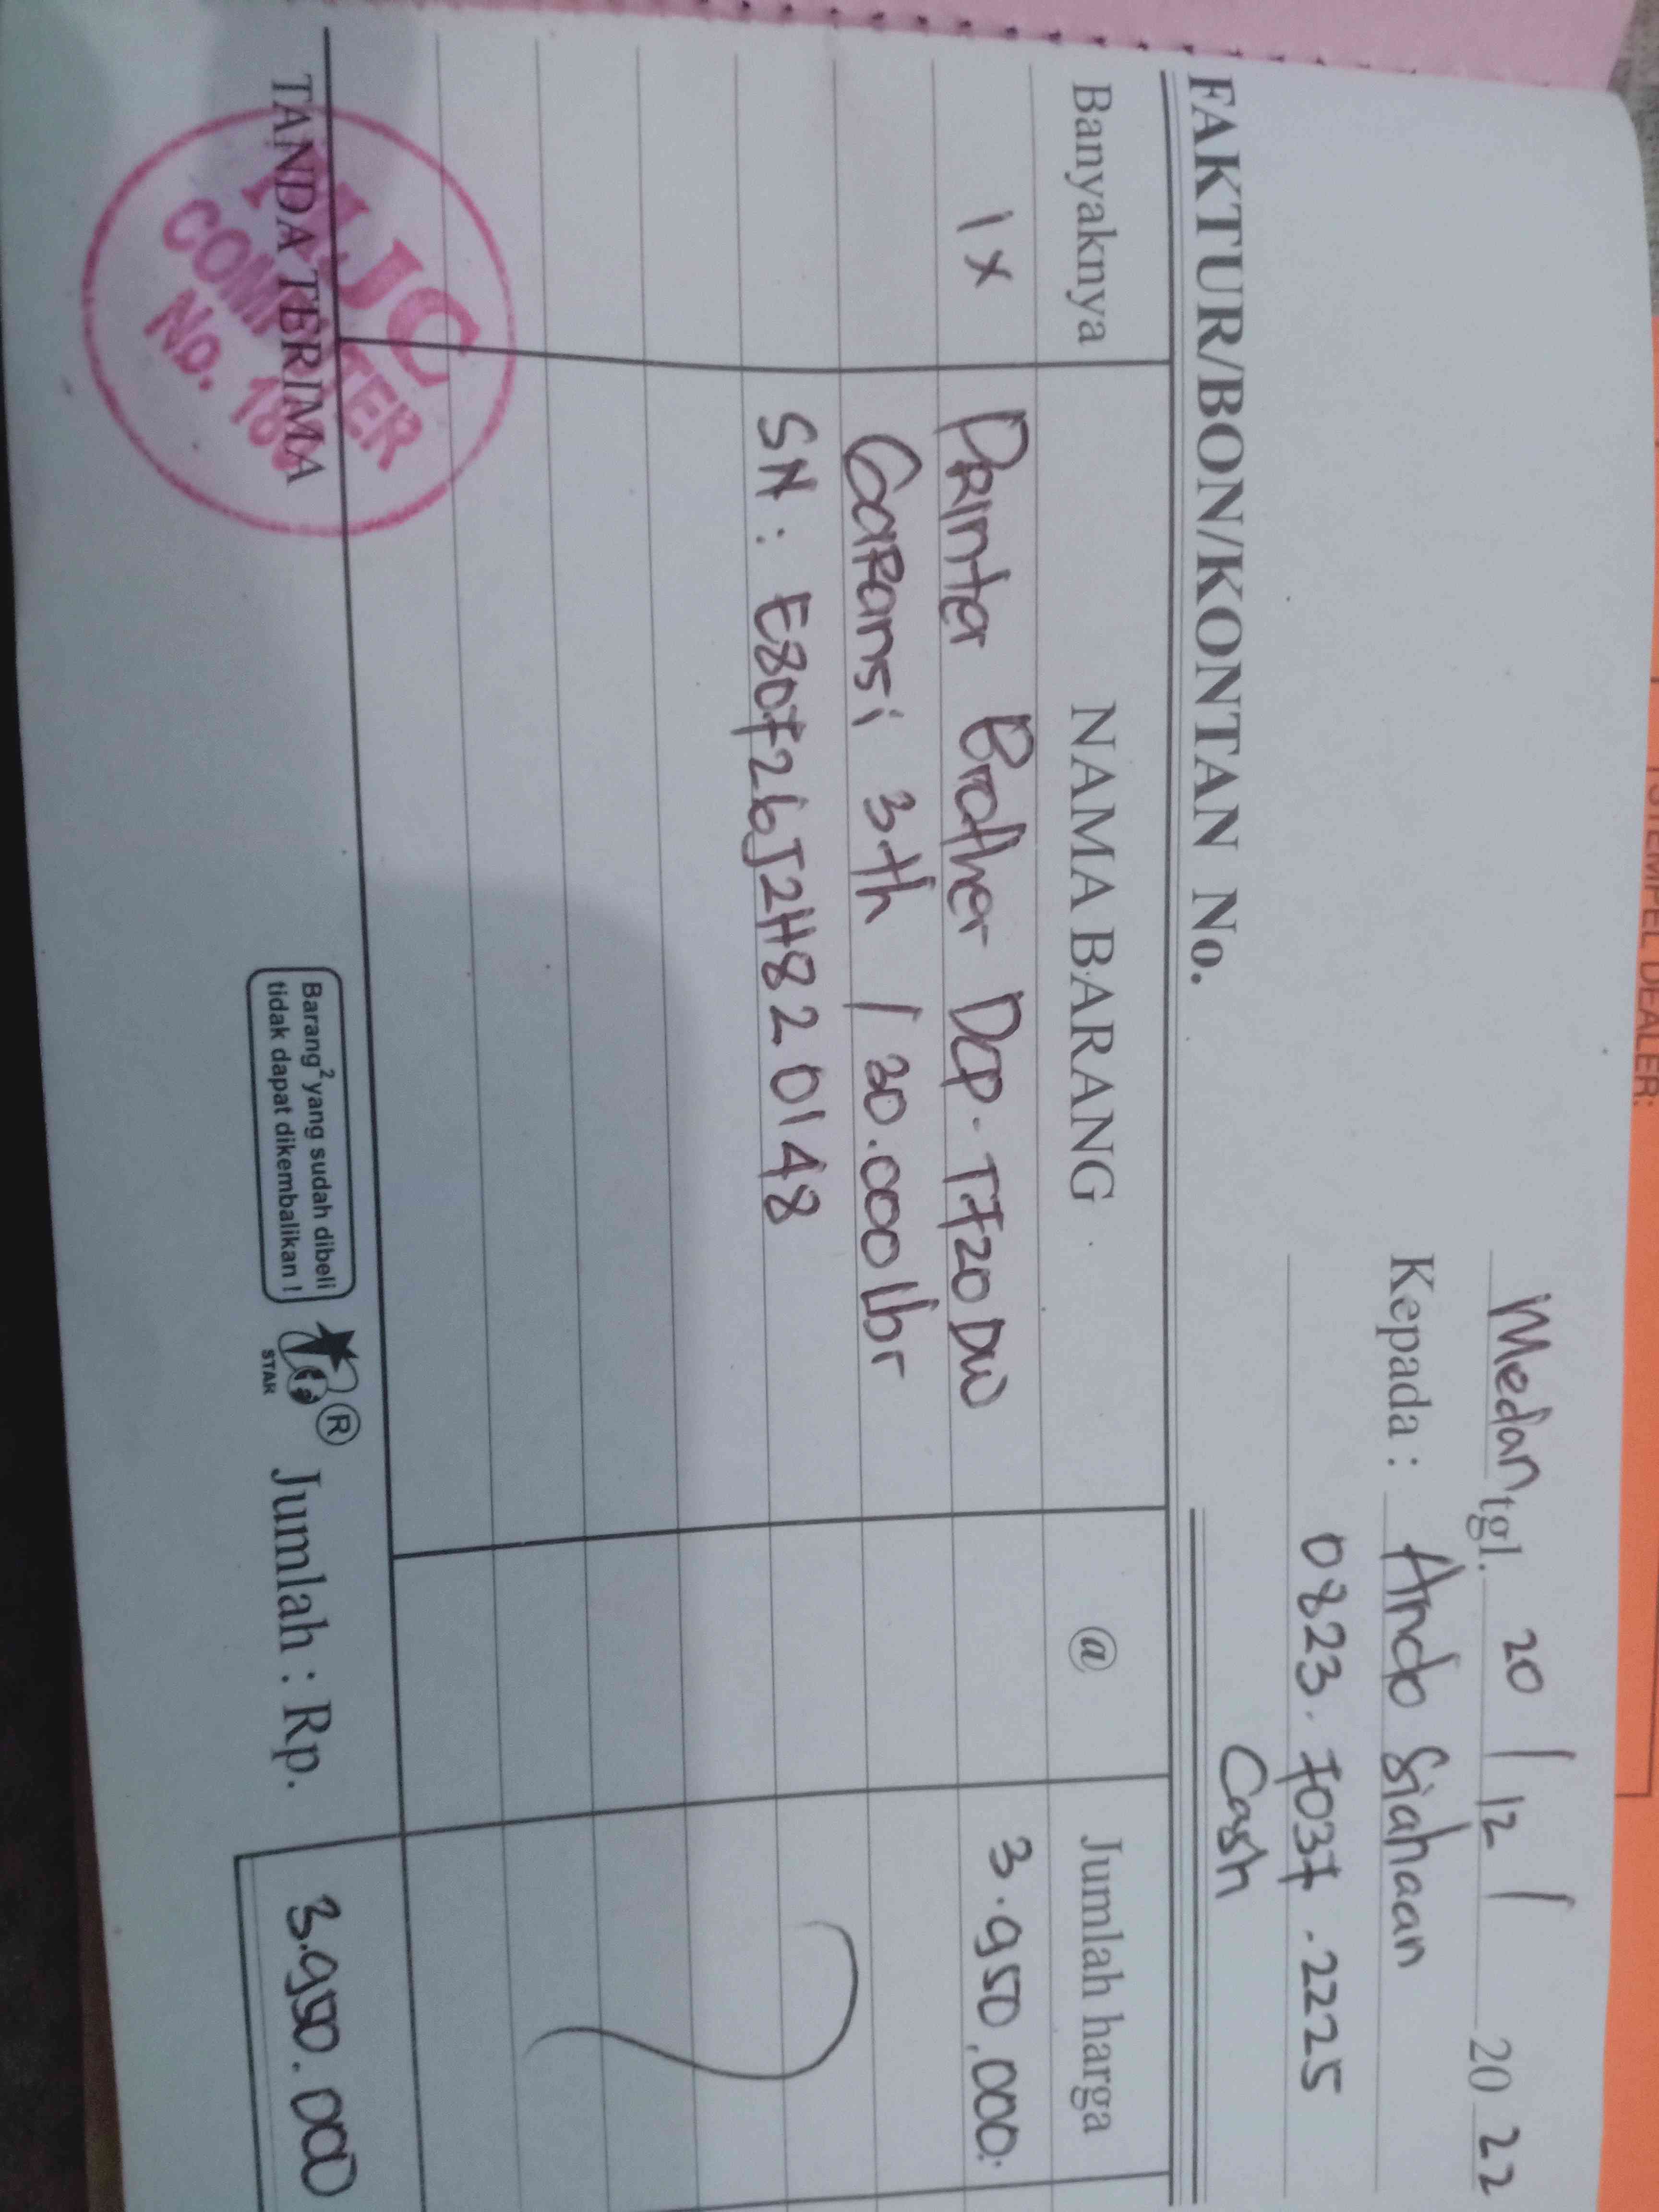 Medan tgl. 20 / 12 / 2022
Kepada : Ando Siahaan
0823.7037.2225
Cash
FAKTUR/BON/KONTAN No.
Banyaknya NAMA BARANG @ Jumlah harga
1x Printer Brother DCP-T720DW 3.950.000
Garansi 3th / 30.000 lbr
SN : E80726J2H820148
TANDA TERIMA
COMPUTER
No.
Barang² yang sudah dibeli
tidak dapat dikembalikan !
STAR
®
Jumlah : Rp. 3.950.000
DEALER: